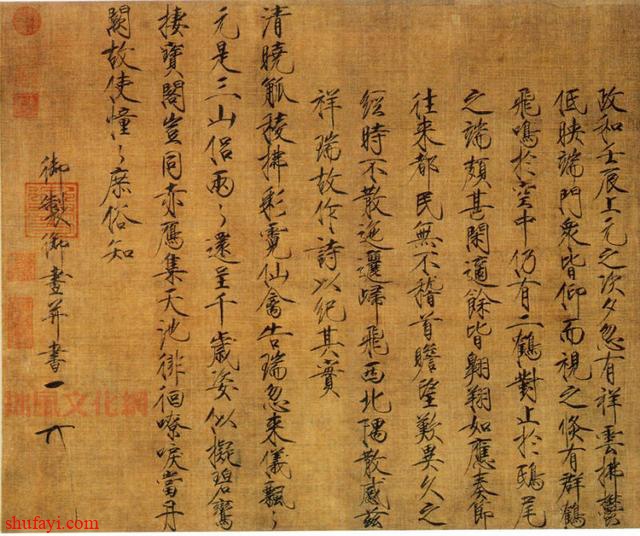 政和壬辰上元之次夕忽有祥雲拂鬱
低映端門衆皆仰而視之倏有群鶴
飛鳴於空中仍有二鶴對止於鴟尾
之端頗甚閑適餘皆翺翔如應奏節
往来都民無不稽首瞻望歎異久之
經時不散迤邐歸飛西北隅散感茲
祥瑞故作詩以紀其實
清曉觚稜拂彩霓仙禽告瑞忽来儀飄〻
元是三山侶兩〻還呈千歲姿似擬碧鸞
棲寶閣豈同赤鴈集天池徘徊嘹唳當丹
闕故使憧〻庶俗知
御製御畫并書
天下一人
拙風文化網
shufayi.com